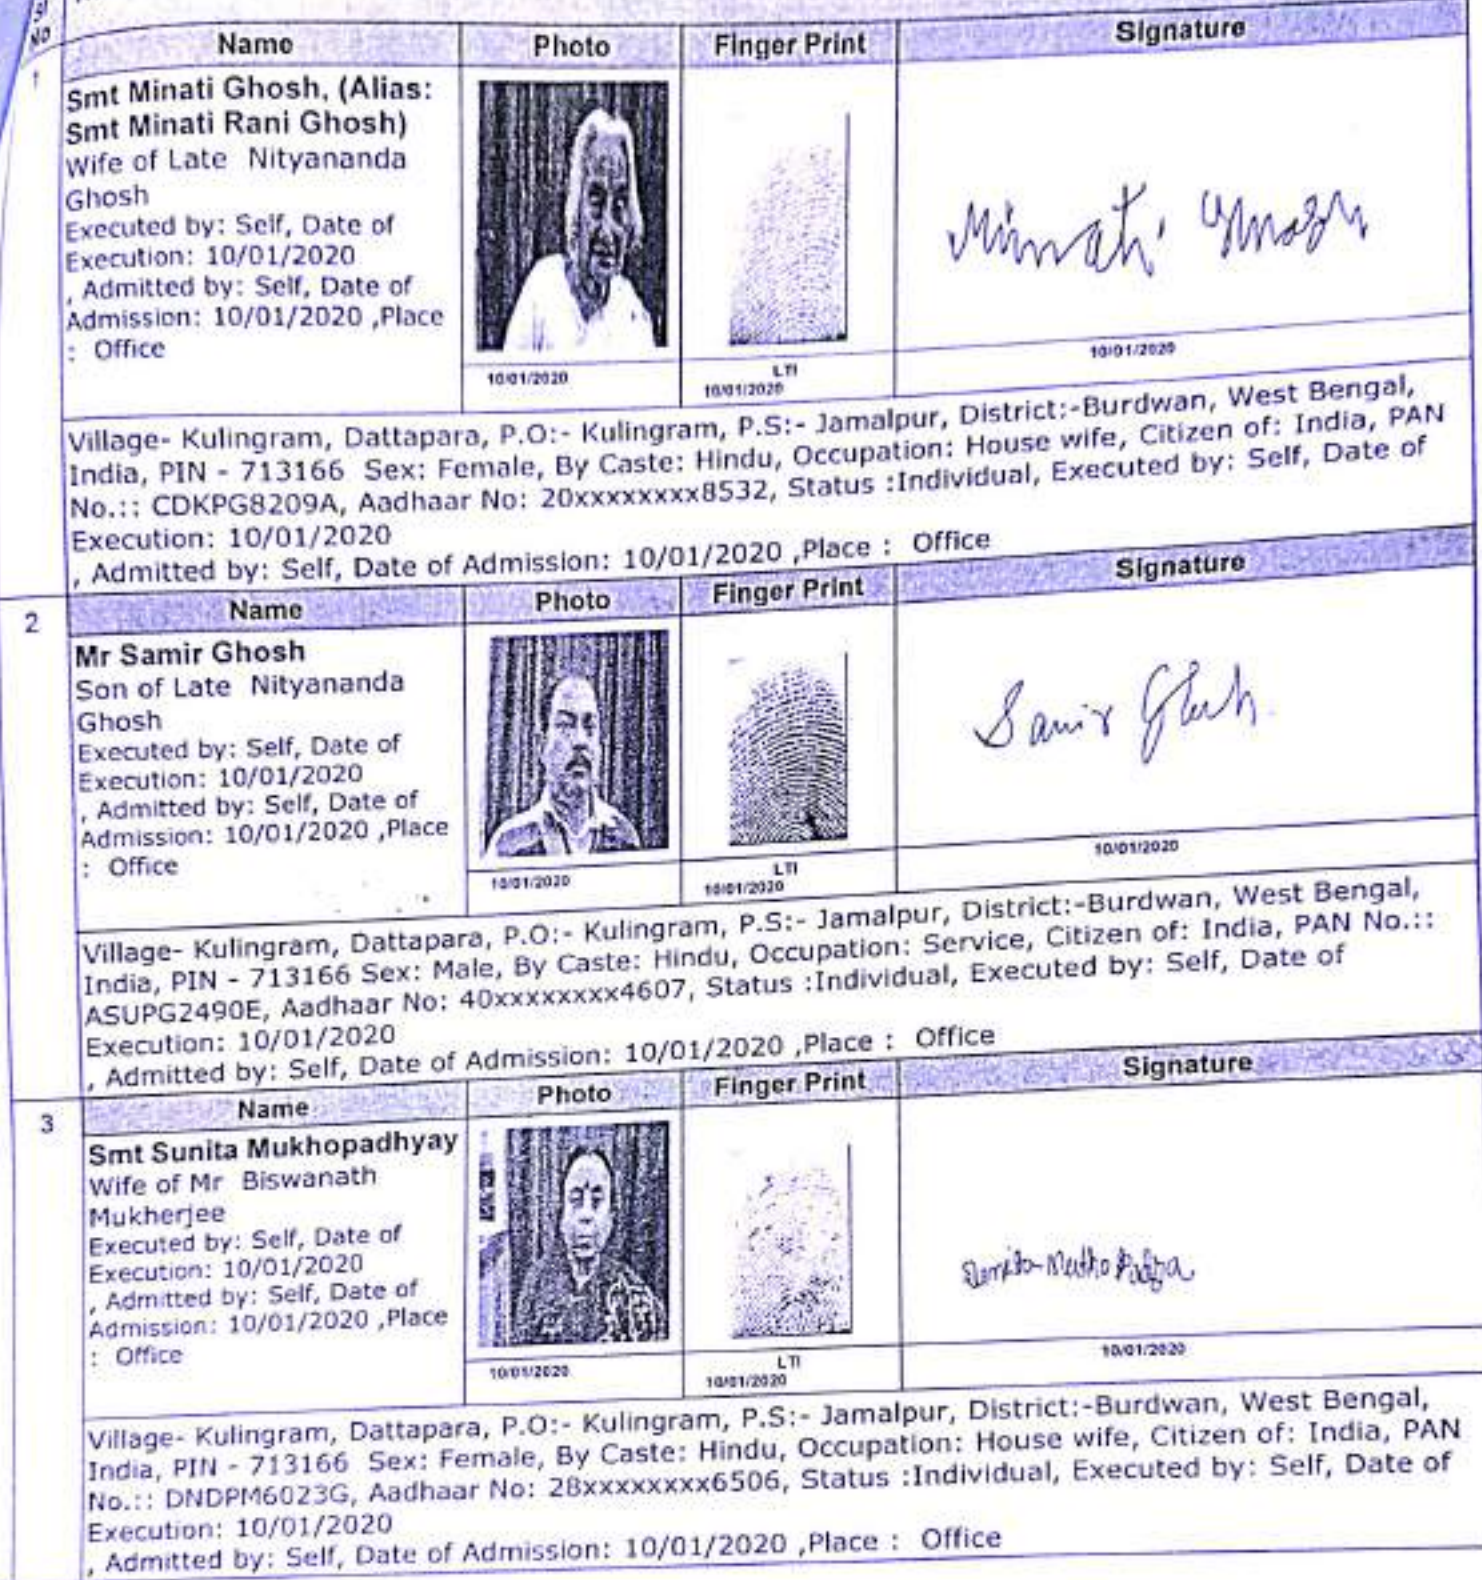 Sl
No
Name Photo Finger Print Signature
1
Smt Minati Ghosh, (Alias:
Smt Minati Rani Ghosh)
Wife of Late Nityananda
Ghosh
Executed by: Self, Date of
Execution: 10/01/2020
, Admitted by: Self, Date of
Admission: 10/01/2020 ,Place
: Office
Minati Ghosh
10/01/2020
LTI
10/01/2020
10/01/2020
Village- Kulingram, Dattapara, P.O:- Kulingram, P.S:- Jamalpur, District:-Burdwan, West Bengal,
India, PIN - 713166 Sex: Female, By Caste: Hindu, Occupation: House wife, Citizen of: India, PAN
No.:: CDKPG8209A, Aadhaar No: 20xxxxxxxx8532, Status :Individual, Executed by: Self, Date of
Execution: 10/01/2020
, Admitted by: Self, Date of Admission: 10/01/2020 ,Place : Office
2
Name Photo Finger Print Signature
Mr Samir Ghosh
Son of Late Nityananda
Ghosh
Executed by: Self, Date of
Execution: 10/01/2020
, Admitted by: Self, Date of
Admission: 10/01/2020 ,Place
: Office
Samir Ghosh
10/01/2020
LTI
10/01/2020
10/01/2020
Village- Kulingram, Dattapara, P.O:- Kulingram, P.S:- Jamalpur, District:-Burdwan, West Bengal,
India, PIN - 713166 Sex: Male, By Caste: Hindu, Occupation: Service, Citizen of: India, PAN No.::
ASUPG2490E, Aadhaar No: 40xxxxxxxx4607, Status :Individual, Executed by: Self, Date of
Execution: 10/01/2020
, Admitted by: Self, Date of Admission: 10/01/2020 ,Place : Office
3
Name Photo Finger Print Signature
Smt Sunita Mukhopadhyay
Wife of Mr Biswanath
Mukherjee
Executed by: Self, Date of
Execution: 10/01/2020
, Admitted by: Self, Date of
Admission: 10/01/2020 ,Place
: Office
10/01/2020
LTI
10/01/2020
10/01/2020
Village- Kulingram, Dattapara, P.O:- Kulingram, P.S:- Jamalpur, District:-Burdwan, West Bengal,
India, PIN - 713166 Sex: Female, By Caste: Hindu, Occupation: House wife, Citizen of: India, PAN
No.:: DNDPM6023G, Aadhaar No: 28xxxxxxxx6506, Status :Individual, Executed by: Self, Date of
Execution: 10/01/2020
, Admitted by: Self, Date of Admission: 10/01/2020 ,Place : Office